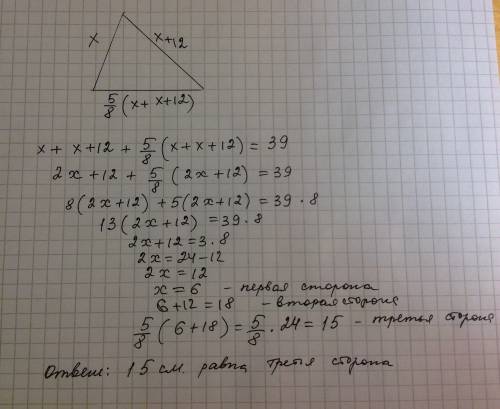 x x+12
5/8 (x + x+12)
x + x+12 + 5/8 (x+x+12) = 39
2x+12 + 5/8 (2x+12) = 39
8(2x+12) +5(2x+12) = 39 · 8
13(2x+12) = 39 · 8
2x+12 = 3 · 8
2x = 24-12
2x = 12
x = 6 - первая сторона
6+12 = 18 - вторая сторона
5/8 (6+18) = 5/8 · 24 = 15 - третья сторона
Ответ: 15 см. равна третья сторона